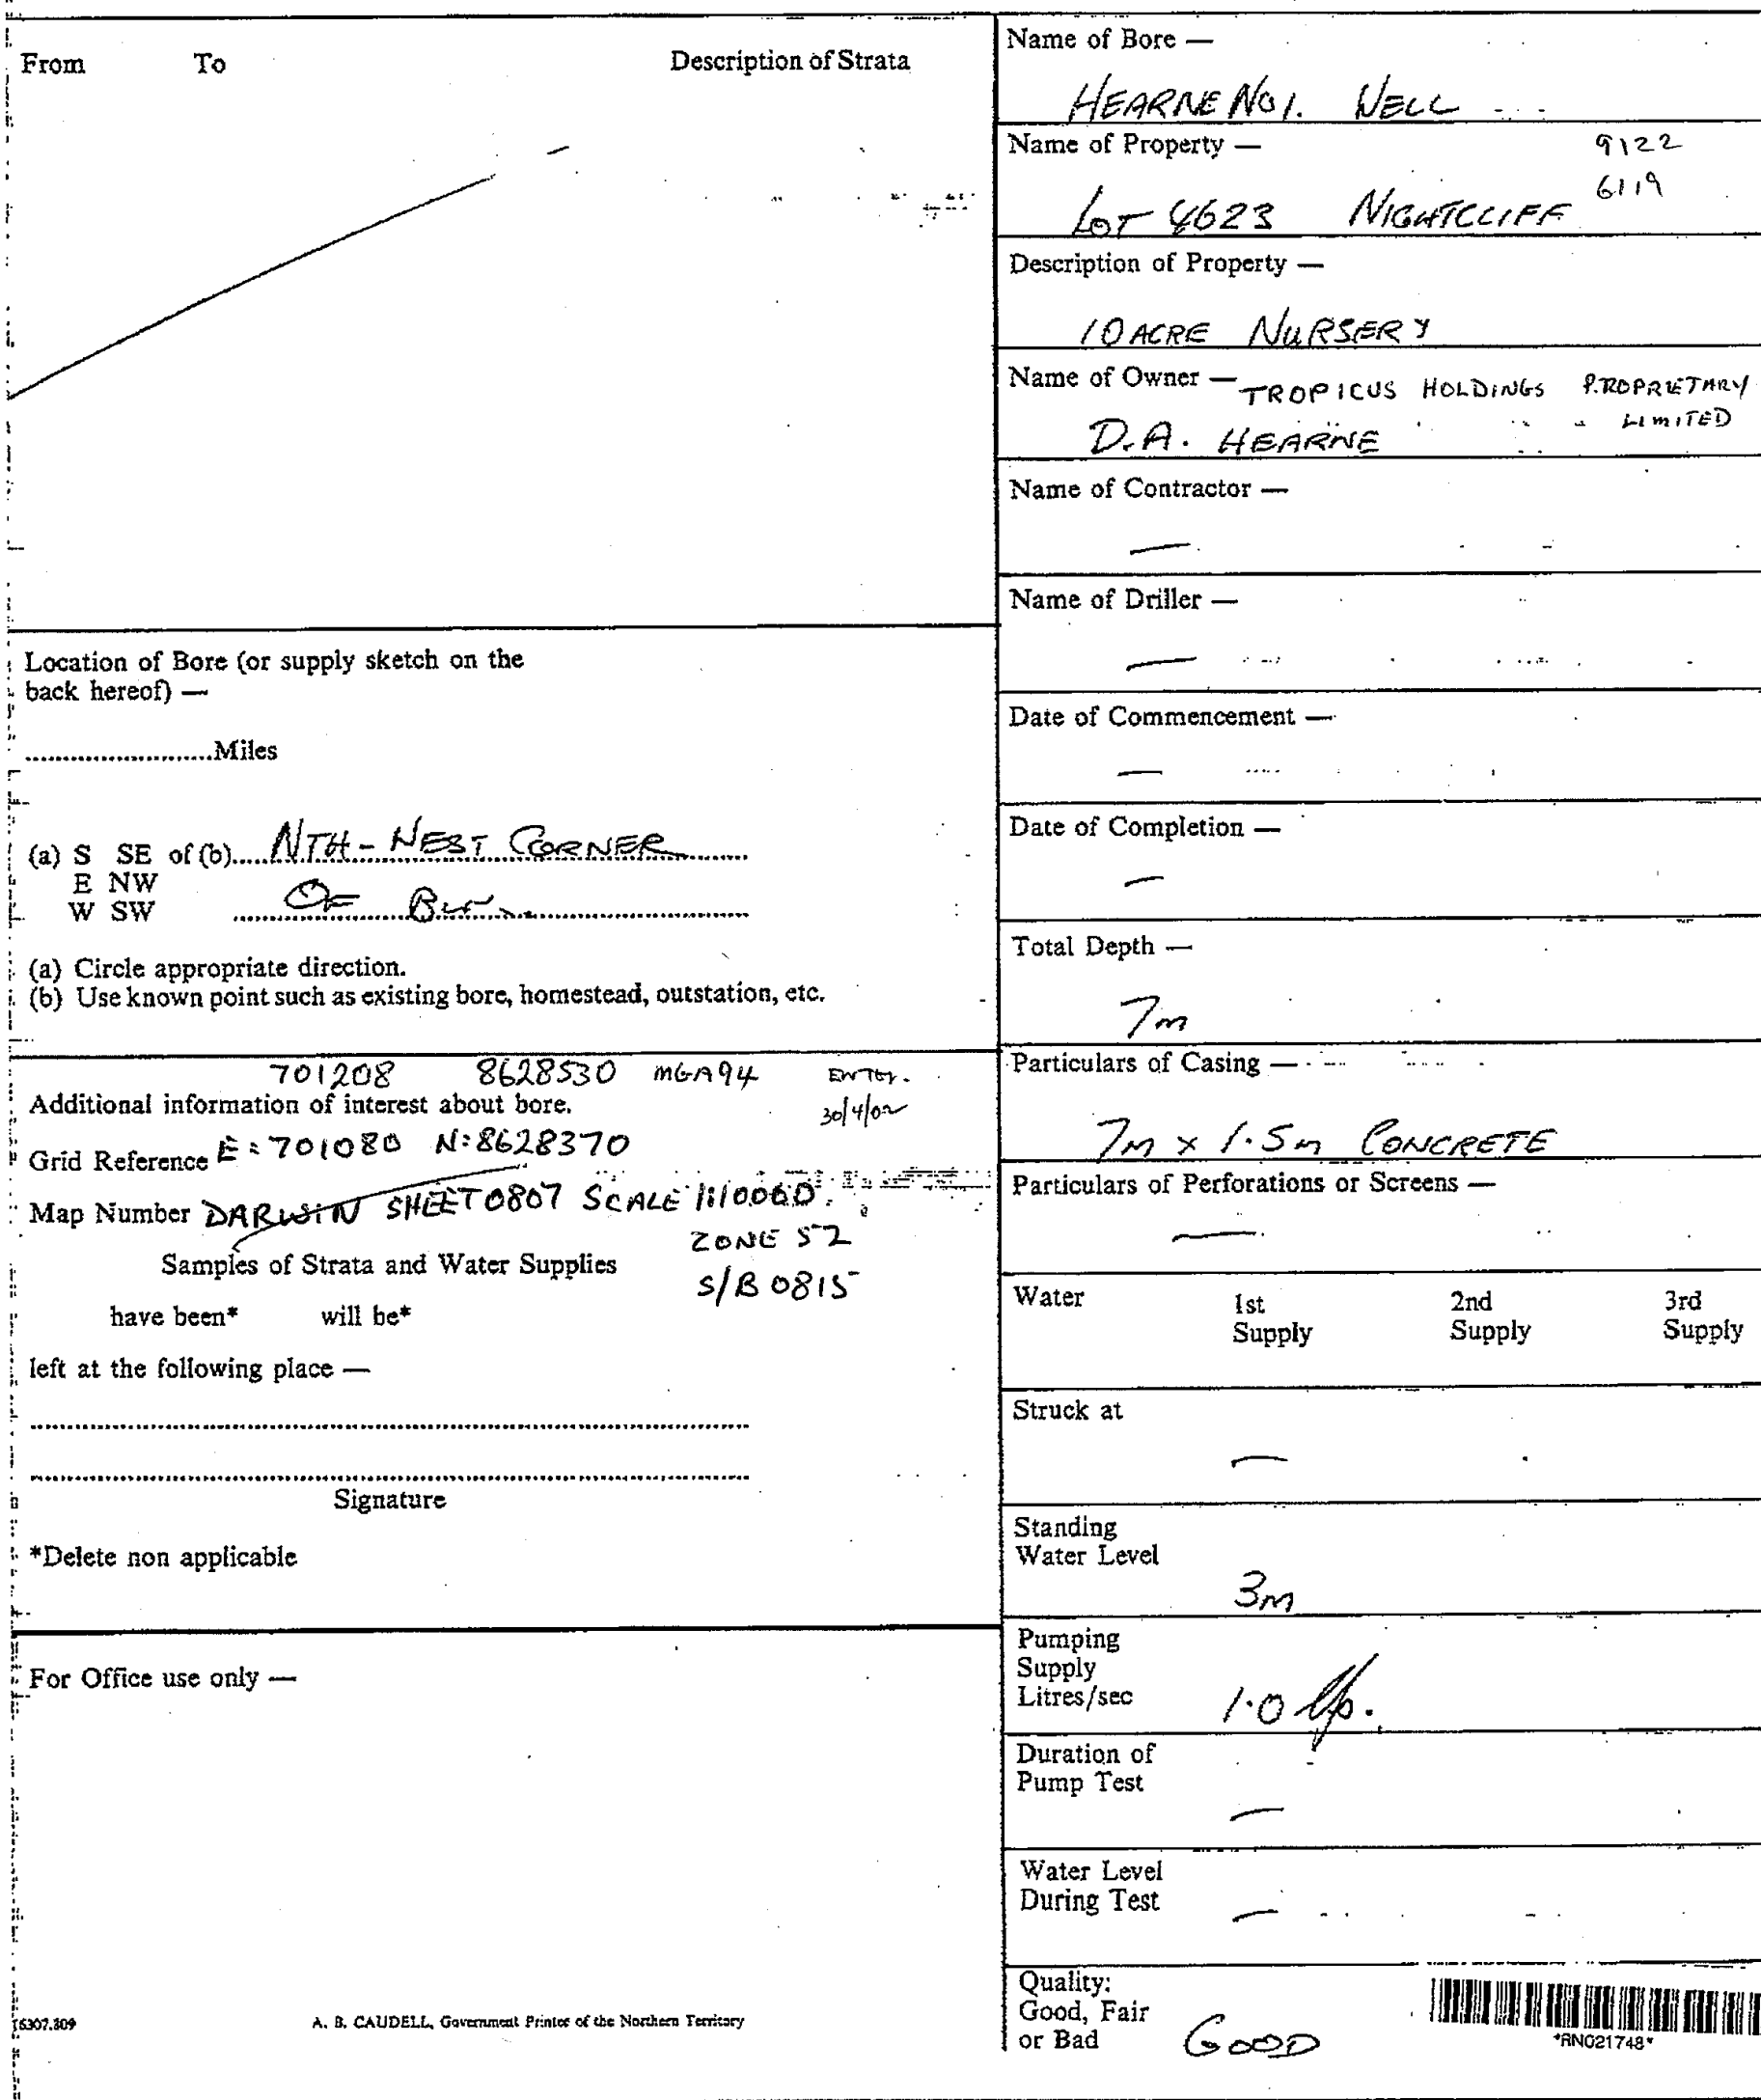 From To Description of Strata
Location of Bore (or supply sketch on the
back hereof) —
........................Miles
(a) S SE of (b)..... NTH-WEST CORNER
E NW
W SW OF
(a) Circle appropriate direction.
(b) Use known point such as existing bore, homestead, outstation, etc.
701208 8628530 MGA94
30/4/02
Additional information of interest about bore.
Grid Reference E: 701080 N: 8628370
Map Number DARWIN SHEET 0807 SCALE 1:10000
ZONE 52
S/B 0815
Samples of Strata and Water Supplies
have been* will be*
left at the following place —
Signature
*Delete non applicable
For Office use only —
A. B. CAUDELL, Government Printer of the Northern Territory
Name of Bore —
HEARNE NO1. WELL
Name of Property —
9122
6119
LOT 4623 NIGHTCLIFF
Description of Property —
10 ACRE NURSERY
Name of Owner — TROPICUS HOLDINGS PROPRIETARY
LIMITED
D.A. HEARNE
Name of Contractor —
—
Name of Driller —
—
Date of Commencement —
—
Date of Completion —
—
Total Depth —
7m
Particulars of Casing —
7m x 1.5m CONCRETE
Particulars of Perforations or Screens —
—
Water 1st 2nd 3rd
Supply Supply Supply
Struck at
—
Standing
Water Level
3m
Pumping
Supply
Litres/sec 1.0
Duration of
Pump Test
—
Water Level
During Test —
Quality:
Good, Fair
or Bad GOOD
*RN021748*